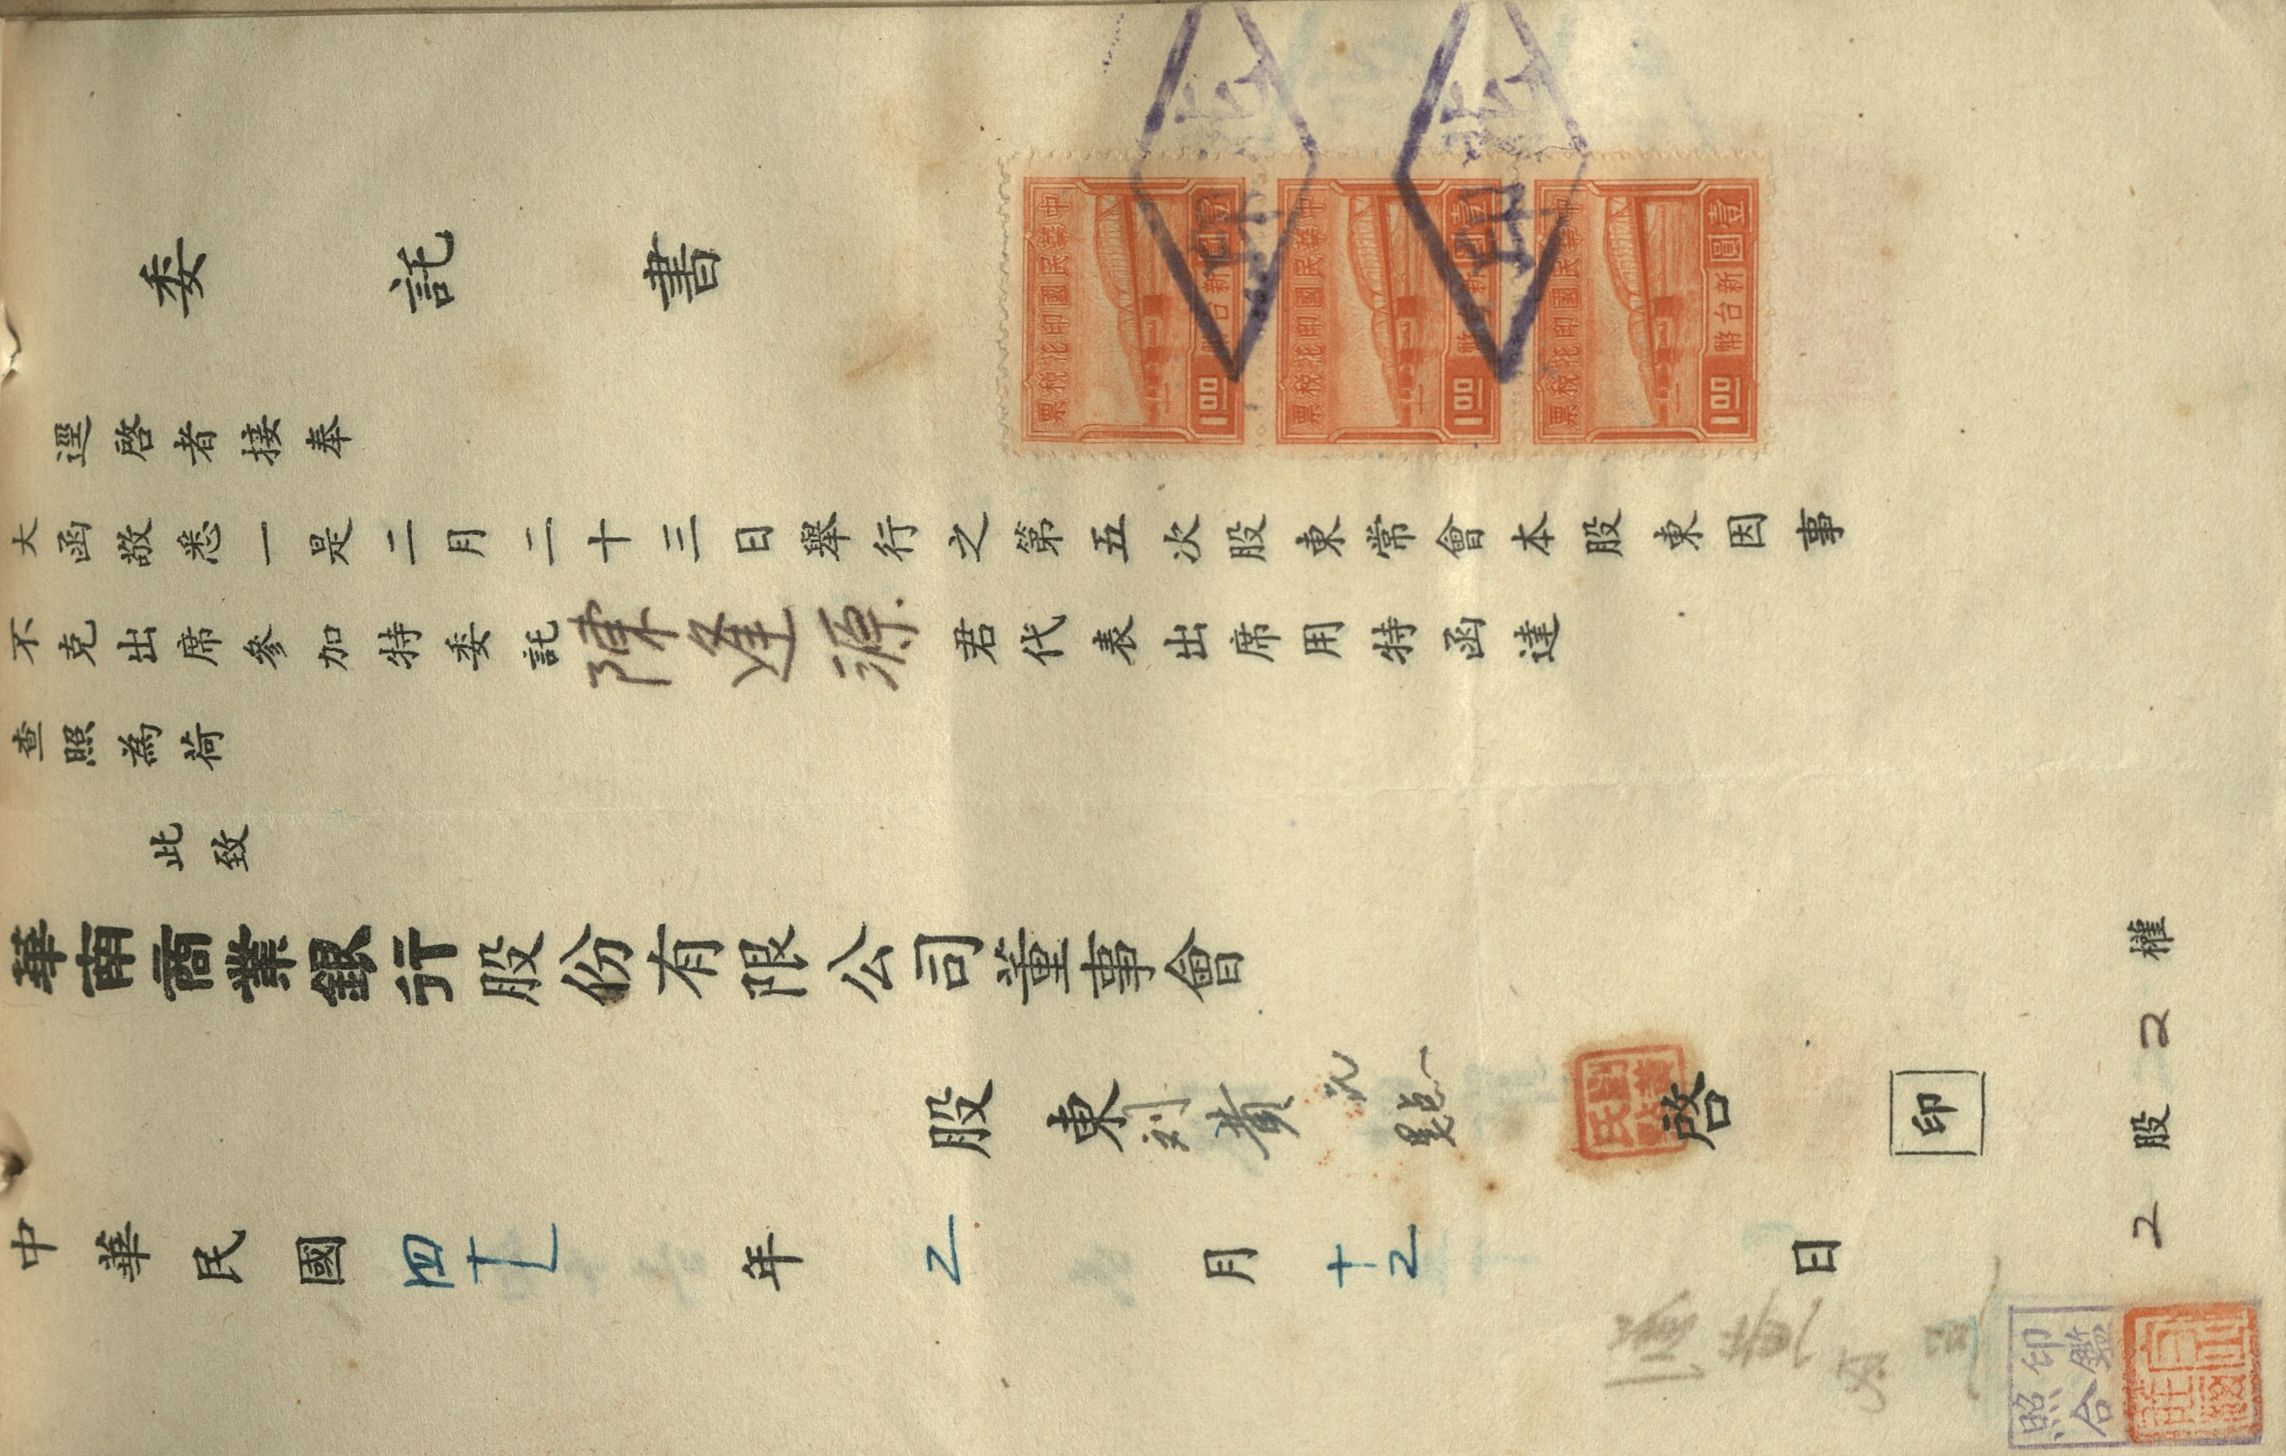 委託書
逕啓者接奉
大函敬悉一是二月二十三日舉行之第五次股東常會本股東因事
不克出席參加特委託陳逢源君代表出席用特函達
查照為荷
此致
華南商業銀行股份有限公司董事會
股東劉黃氏點啓 印
中華民國四十七年2月十2日
2股2權
中華民國印花稅票
壹圓
新台幣
1.00
中華民國印花稅票
壹圓
新台幣
1.00
中華民國印花稅票
壹圓
新台幣
1.00
印鑑
照合